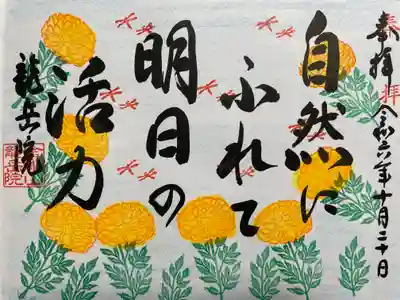 奉拝
令和六年十月二十日
自然に
ふれて
明日の
活力
龍岳院